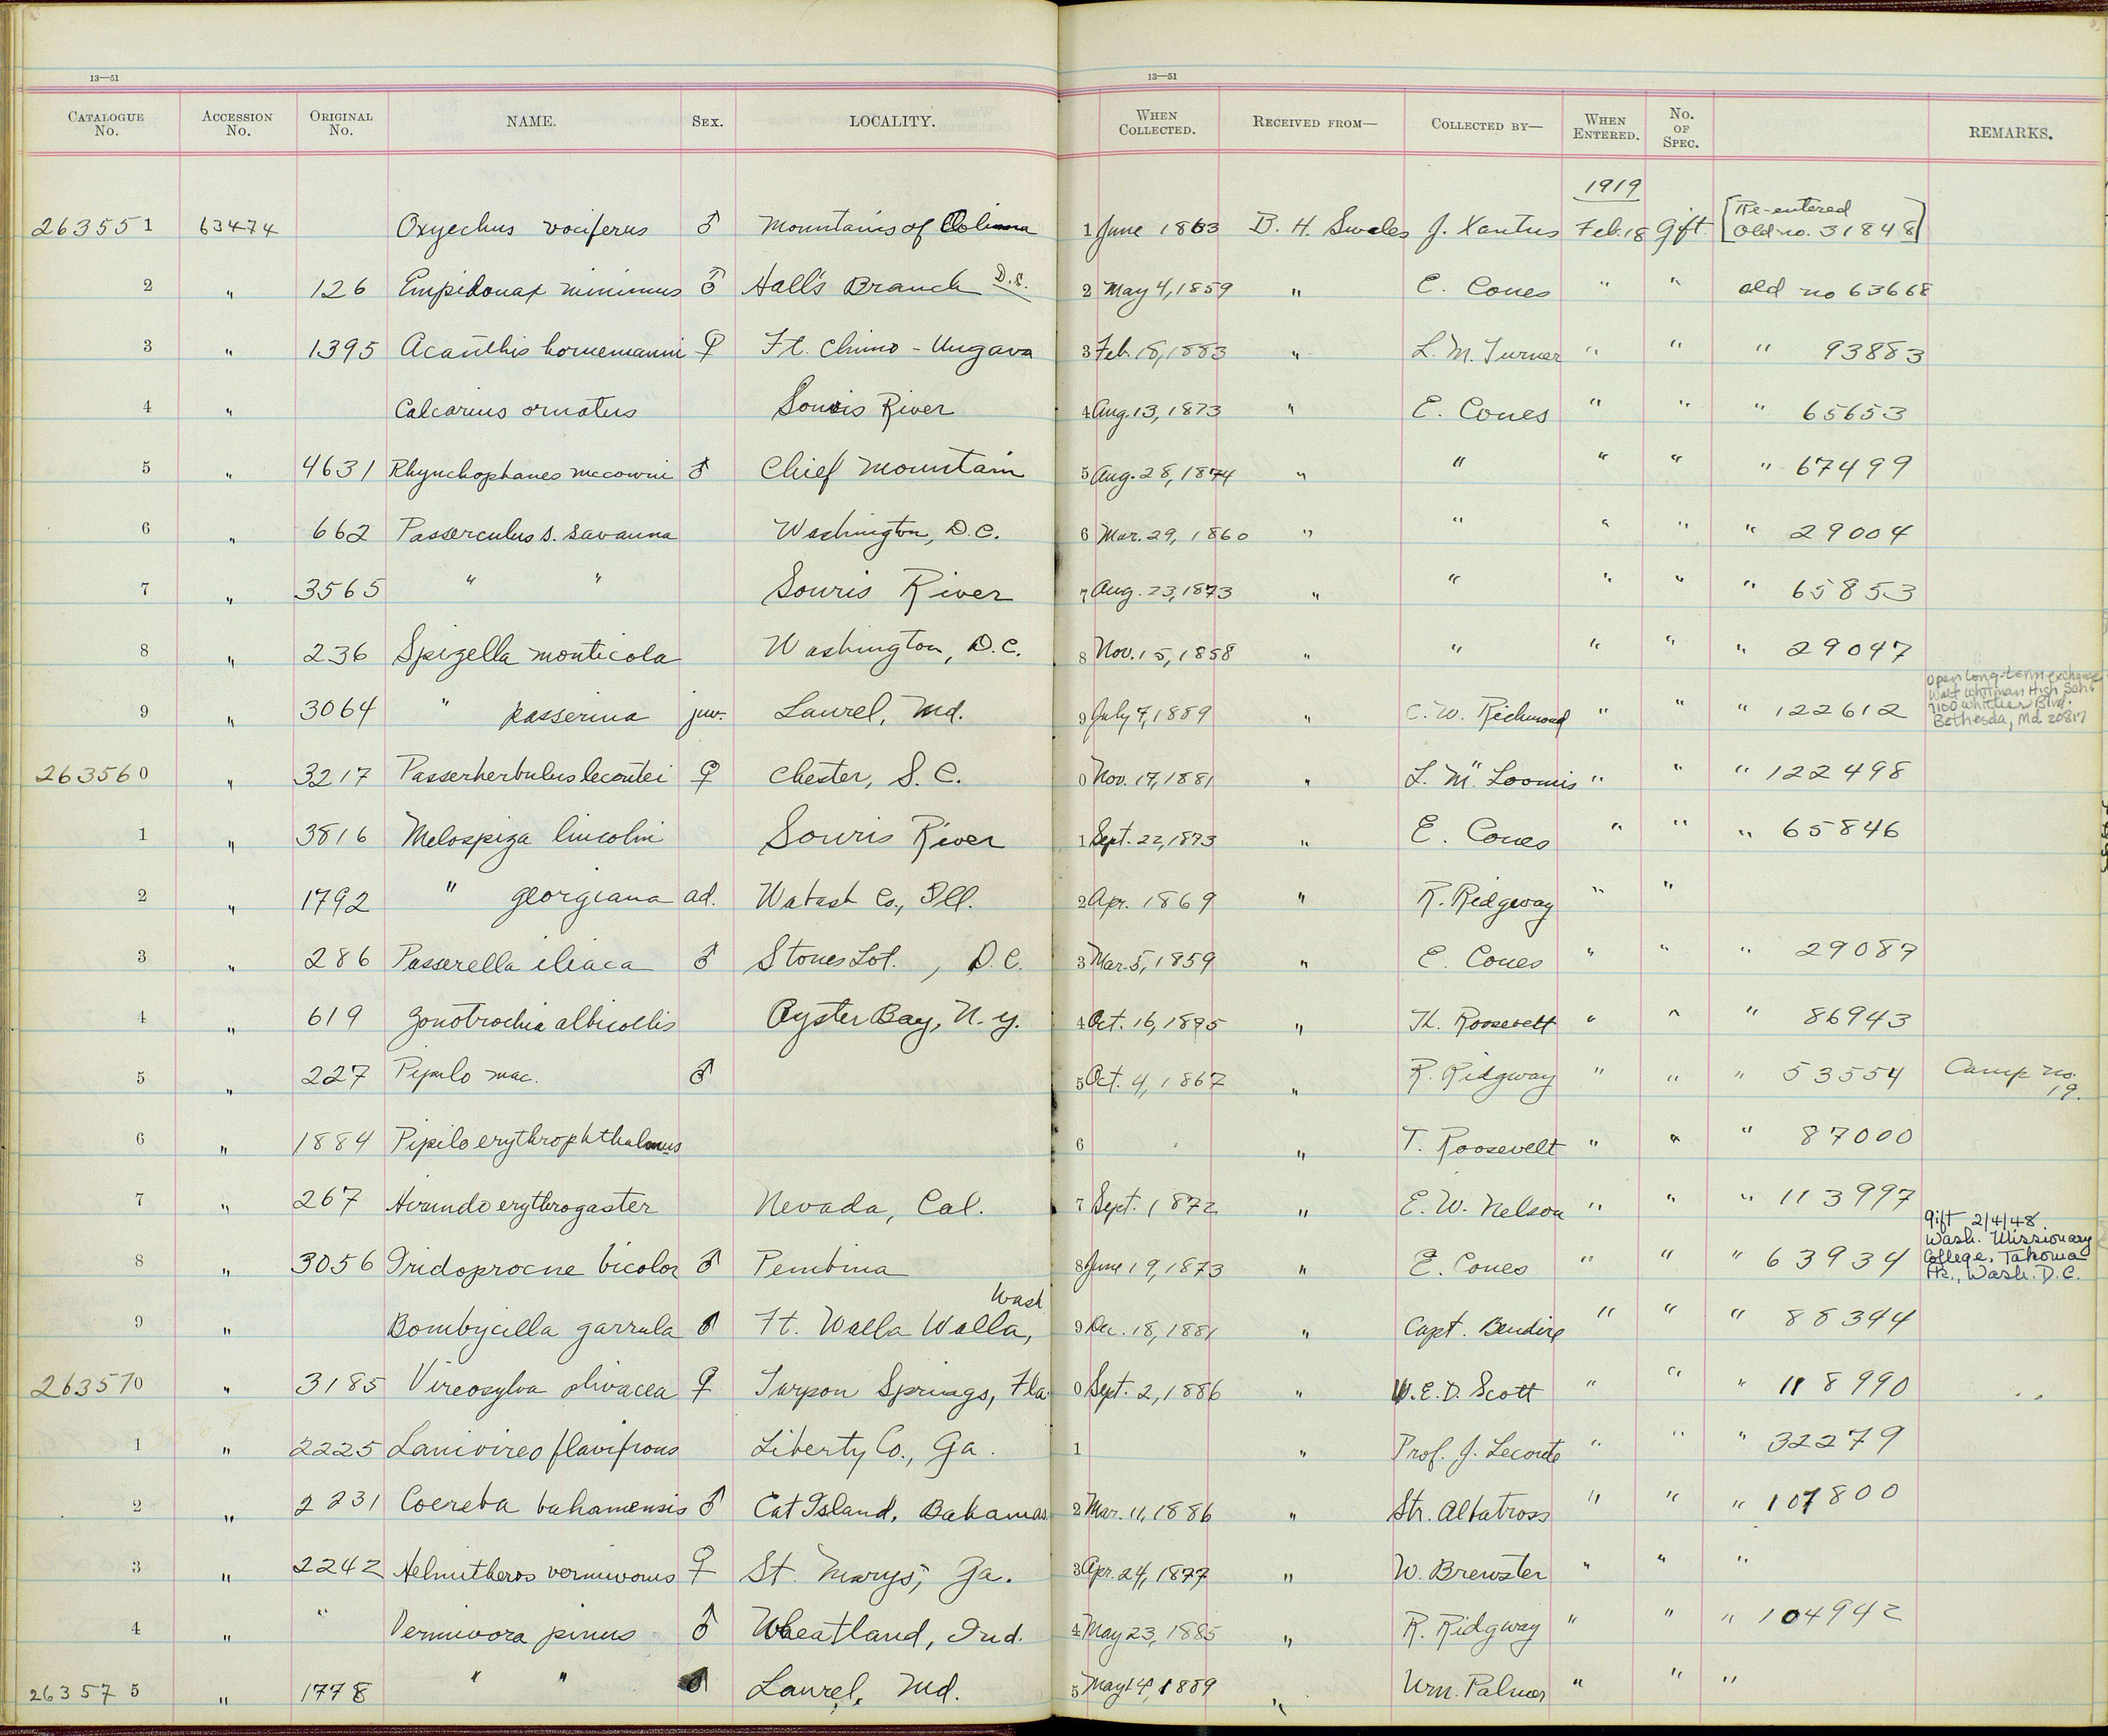 13—51 13—51
CATALOGUE No. ACCESSION No. ORIGINAL No. NAME. SEX. LOCALITY. WHEN COLLECTED. RECEIVED FROM— COLLECTED BY— WHEN ENTERED. No. OF SPEC. REMARKS.
1919
263551 63474 Oxyechus vociferus ♂ Mountains of Colima 1 June 1863 B. H. Swales J. Xantus Feb. 18 Gift [Re-entered Old no. 31848]
2 " 126 Empidonax minimus ♂ Hall's Branch D.C. 2 May 4, 1859 " E. Coues " " old no 63668
3 " 1395 Acanthis hornemanni ♀ Ft. Chimo - Ungava 3 Feb. 18, 1883 " L. M. Turner " " " 93883
4 " Calcarius ornatus Souris River 4 Aug. 13, 1873 " E. Coues " " " 65653
5 " 4631 Rhynchophanes mccowni ♂ Chief Mountain 5 Aug. 28, 1874 " " " " " 67499
6 " 662 Passerculus s. savanna Washington, D.C. 6 Mar. 29, 1860 " " " " " 29004
7 " 3565 " " Souris River 7 Aug. 23, 1873 " " " " " 65853
8 " 236 Spizella monticola Washington, D.C. 8 Nov. 15, 1858 " " " " " 29047
9 " 3064 " passerina juv. Laurel, Md. 9 July 7, 1889 " C. W. Richmond " " " 122612 Open long-term exchange
Walt Whitman High Sch.
7100 Whittier Blvd.
Bethesda, Md. 20817
263560 " 3217 Passerherbulus lecontei ♀ Chester, S. C. 0 Nov. 17, 1881 " L. M. Loomis " " " 122498
1 " 3816 Melospiza lincolni Souris River 1 Sept. 22, 1873 " E. Coues " " " 65846
2 " 1792 " georgiana ad. Wabash Co., Ill. 2 Apr. 1869 " R. Ridgway " "
3 " 286 Passerella iliaca ♂ Stones Lot. , D.C. 3 Mar. 5, 1859 " E. Coues " " " 29087
4 " 619 Zonotrichia albicollis Oyster Bay, N.Y. 4 Oct. 16, 1895 " Th. Roosevelt " " " 86943
5 " 227 Pipilo mac. ♂ 5 Oct. 4, 1867 " R. Ridgway " " " 53554 Camp no. 19.
6 " 1884 Pipilo erythrophthalmus 6 " T. Roosevelt " " " 87000
7 " 267 Hirundo erythrogaster Nevada, Cal. 7 Sept. 1872 " E. W. Nelson " " " 113997
8 " 3056 Iridoprocne bicolor ♂ Pembina 8 June 19, 1873 " E. Coues " " " 63934 Gift 2/4/48.
Wash. Missionary
College, Takoma
Pk., Wash. D.C.
9 " Bombycilla garrula ♂ Ft. Walla Walla, Wash 9 Dec. 18, 1881 " Capt. Bendire " " " 88344
263570 " 3185 Vireosylva olivacea ♀ Tarpon Springs, Fla. 0 Sept. 2, 1886 " W. E. D. Scott " " " 118990
1 " 2225 Lanivireo flavifrons Liberty Co., Ga. 1 " Prof. J. Leconte " " " 32279
2 " 2231 Coereba bahamensis ♂ Cat Island, Bahamas. 2 Mar. 11, 1886 " Str. Albatross " " " 107800
3 " 2242 Helmitheros vermivorus ♀ St. Marys, Ga. 3 Apr. 24, 1877 " W. Brewster " " "
4 " " Vermivora pinus ♂ Wheatland, Ind. 4 May 23, 1885 " R. Ridgway " " " 104942
263575 " 1778 " " ♂ Laurel, Md. 5 May 14, 1889 " Wm. Palmer " " "